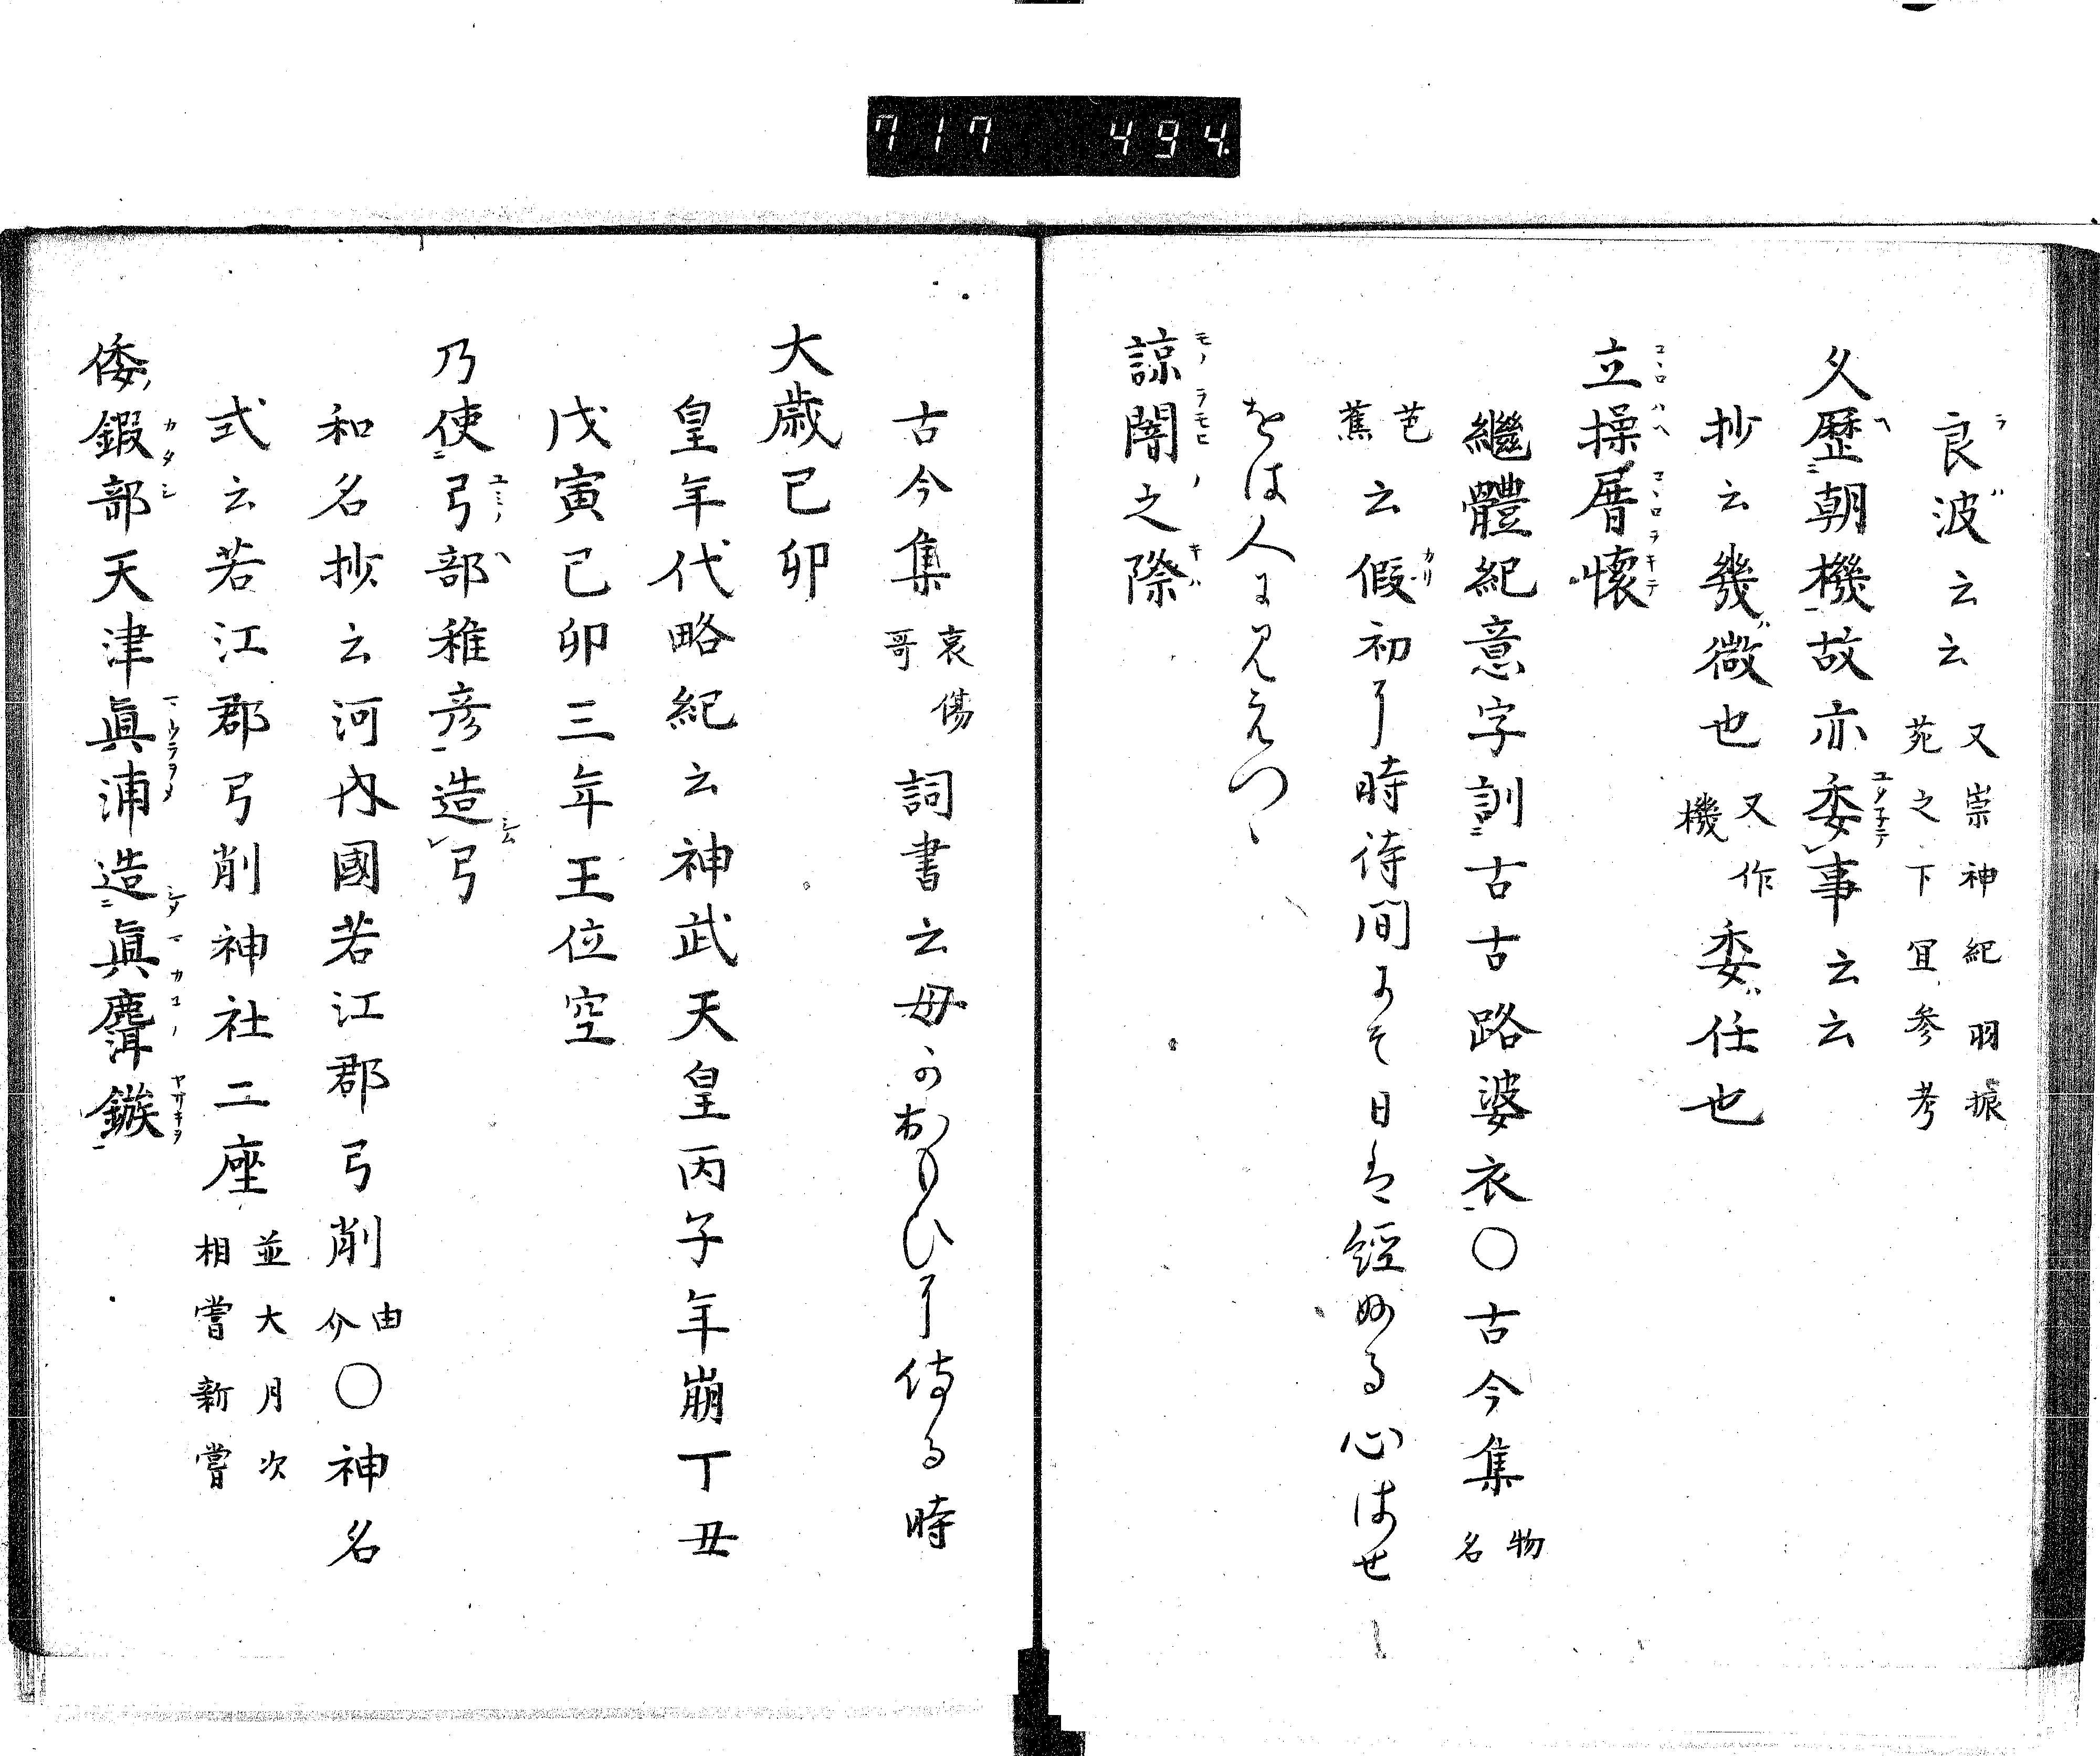 717 494
良波云云 又崇神紀羽振
苑之下宜参考
久歷朝機故亦委事云云
抄云幾微也 又作
機 委任也
立操厝懷
繼體紀意字訓古古路婆衣〇古今集 物
名
芭
蕉 云假初の時待間にそ日は經ぬる心はせ
をは人に見えつゝ
諒闇之際
古今集 哀傷
哥 詞書云母かおもひに侍る時
大歳己卯
皇年代略紀云神武天皇丙子年崩丁丑
戊寅己卯三年王位空
乃使弓部稚彦造弓
和名抄云河内國若江郡弓削 由
介 〇神名
式云若江郡弓削神社二座 並大月次
相嘗新嘗
倭鍛部天津眞浦造眞麛鏃